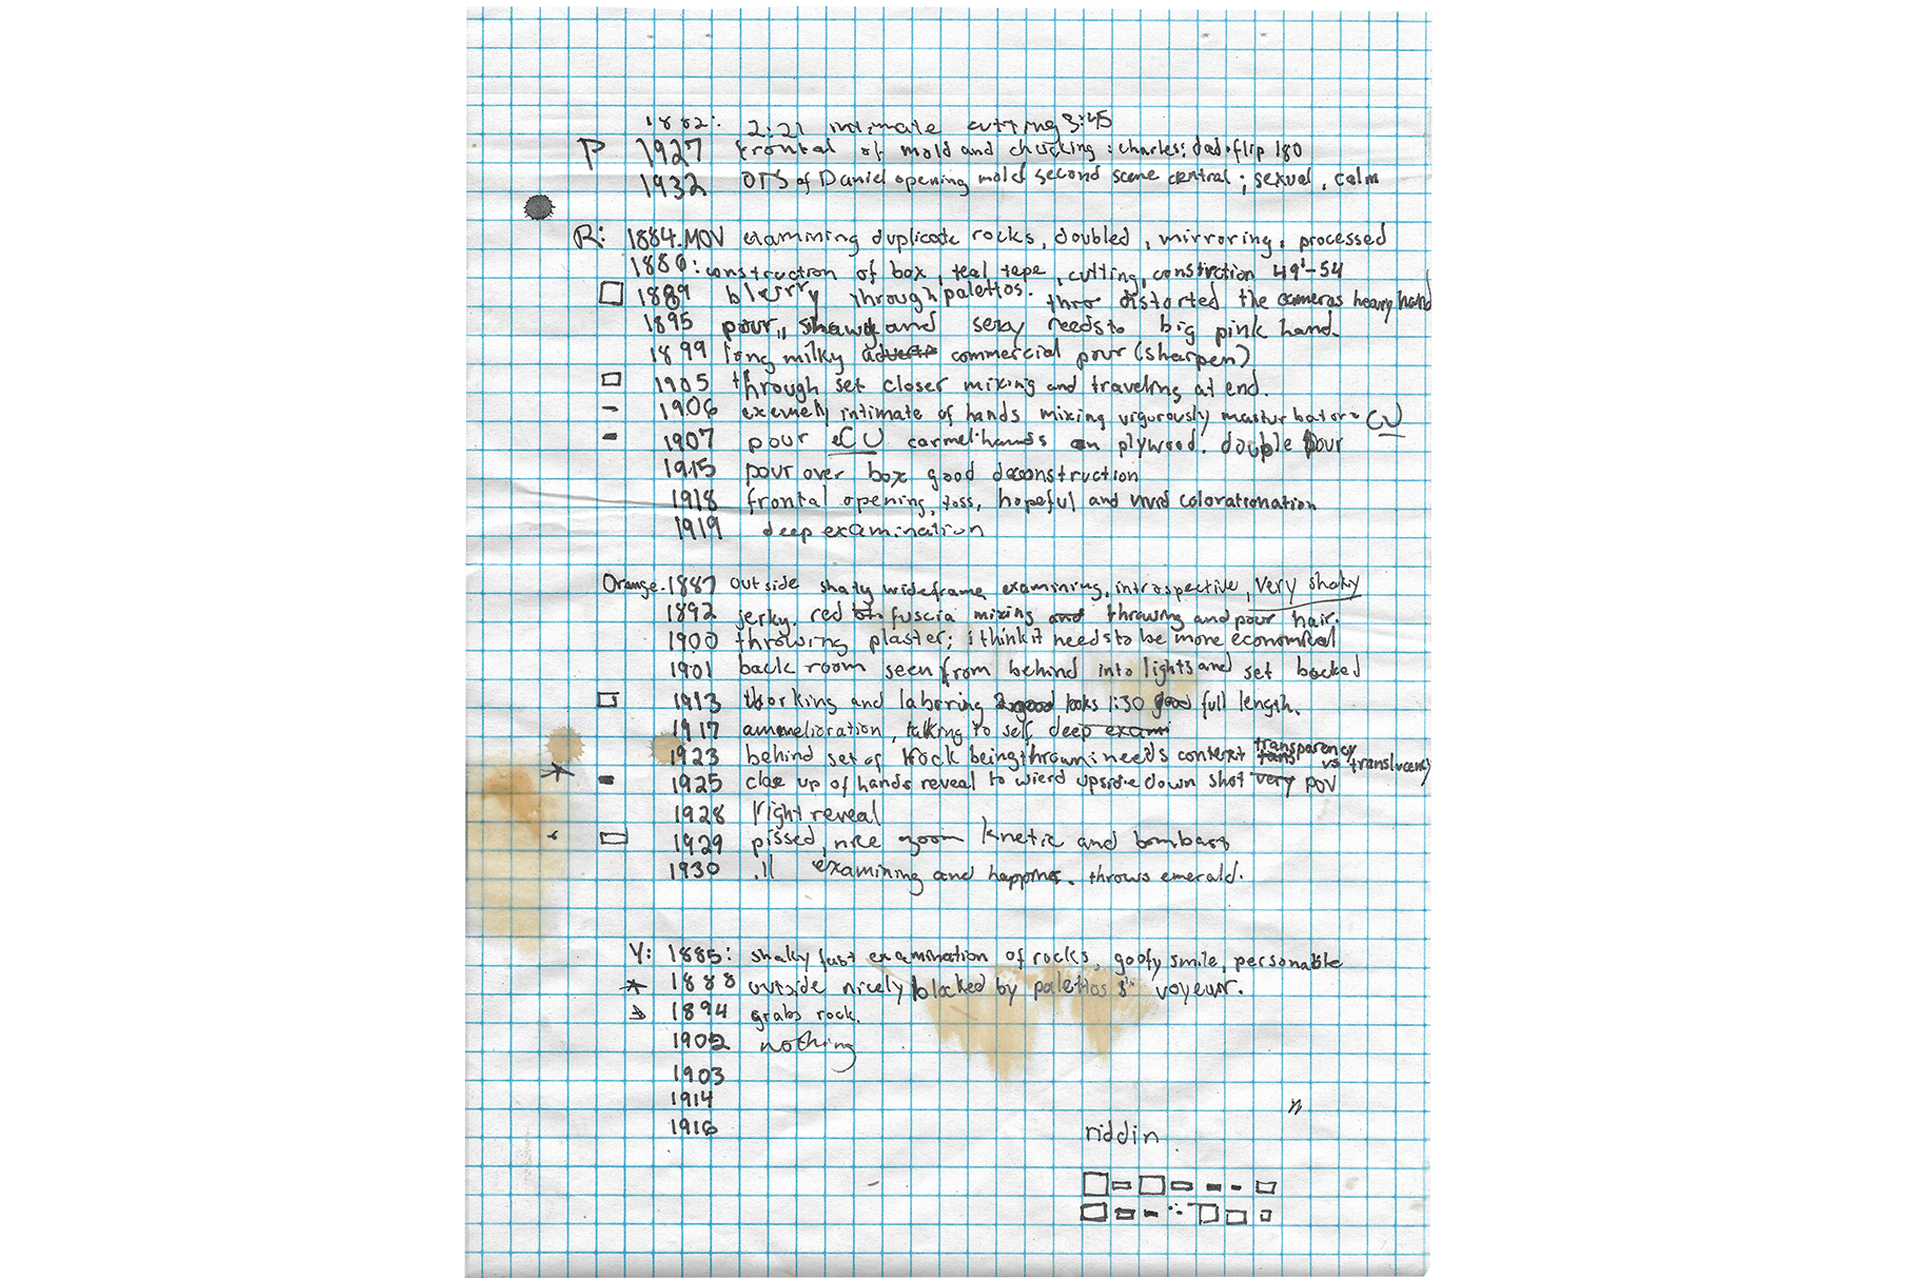 1882: 2:21 intimate cutting 3:45
P 1927 frontal of mold and chucking : charles: dad. flip 180
1932 OTS of Daniel opening mold second scene central ; sexual, calm
R: 1884.MOV examining duplicate rocks, doubled, mirroring, processed
1880: construction of box, teal tape, cutting, constirction 49'-54
1889 blurry through palettos. thro distorted the cameras heavy hand
1895 pour, and sexy needs to big pink hand.
1899 long milky commercial pour (sharpen)
1905 through set closer mixing and traveling at end.
1906 exemely intimate of hands mixing vigorously masturbator CU
1907 pour eCU carmel hands on plywood. double pour
1915 pour over box good deconstruction
1918 frontal opening, toss, hopeful and vivid colorationation
1919 deep examination
Orange. 1887 outside shaky wideframe examining, introspective, very shaky
1892 jerky. red fuscia mixing and throwing and pour hair.
1900 throwing plaster; i think it needs to be more economical
1901 back room seen from behind into lights and set backed
1913 working and laboring looks 1:30 good full length.
1917 ammelioration, talking to self, deep exami
1923 behind set of rock being thrown: needs context transparency vs translucency
1925 close up of hands reveal to wierd upside down shot very POV
1928 right reveal
1929 pissed, nice zoom kinetic and bombast
1930 .11 examining and happines. throws emerald.
Y: 1885: shaky fast examination of rocks, goofy smile, personable
1888 outside nicely blocked by palettos voyeur.
1894 grabs rock.
1902 nothing
1903
1914
1916
n
riddin